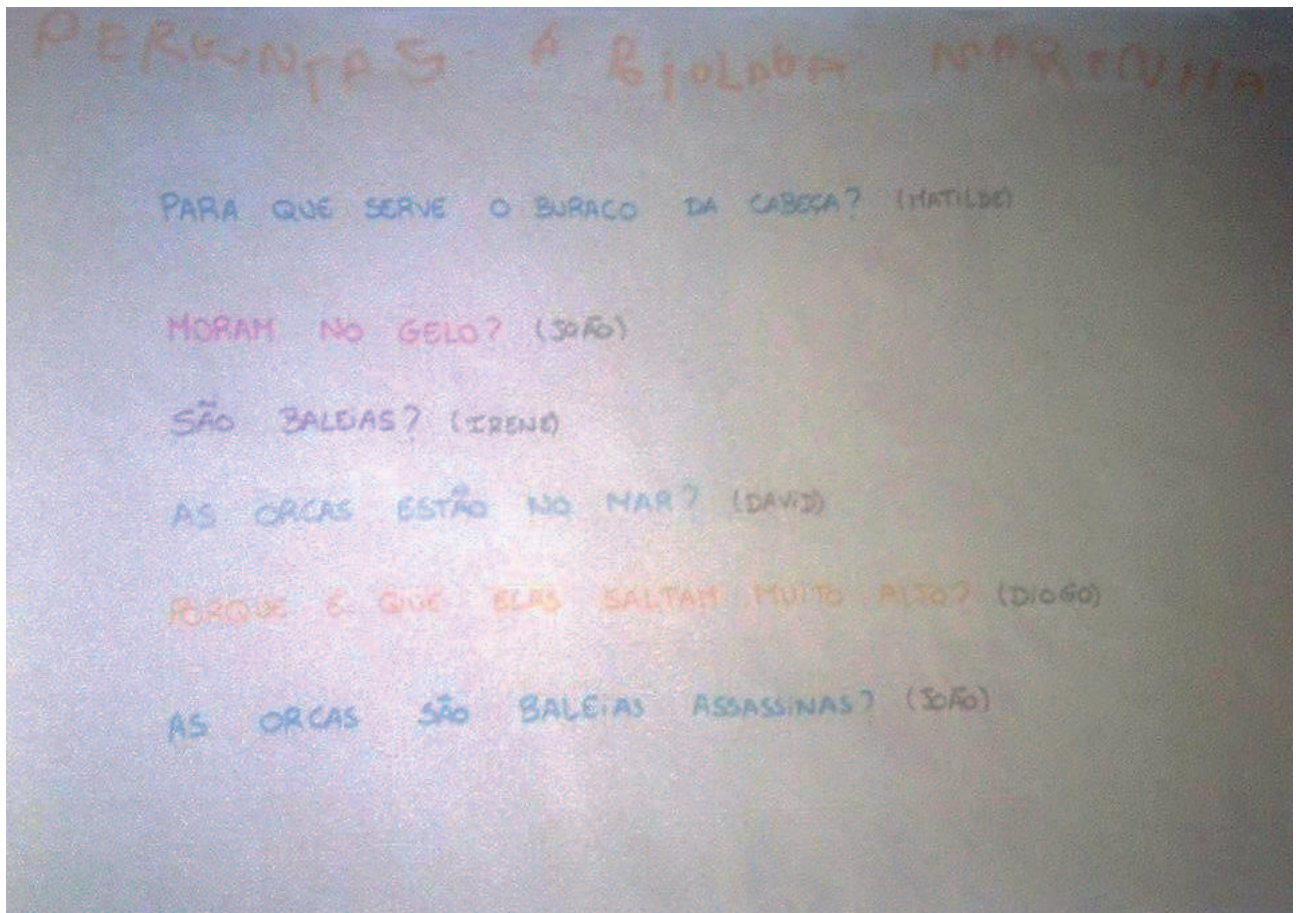 PERGUNTAS À BIOLOGA MARINHA
PARA QUE SERVE O BURACO DA CABEÇA? (MATILDE)
MORAM NO GELO? (JOÃO)
SÃO BALEIAS? (IRENE)
AS ORCAS ESTÃO NO MAR? (DAVID)
PORQUE É QUE ELAS SALTAM MUITO ALTO? (DIOGO)
AS ORCAS SÃO BALEIAS ASSASSINAS? (JOÃO)